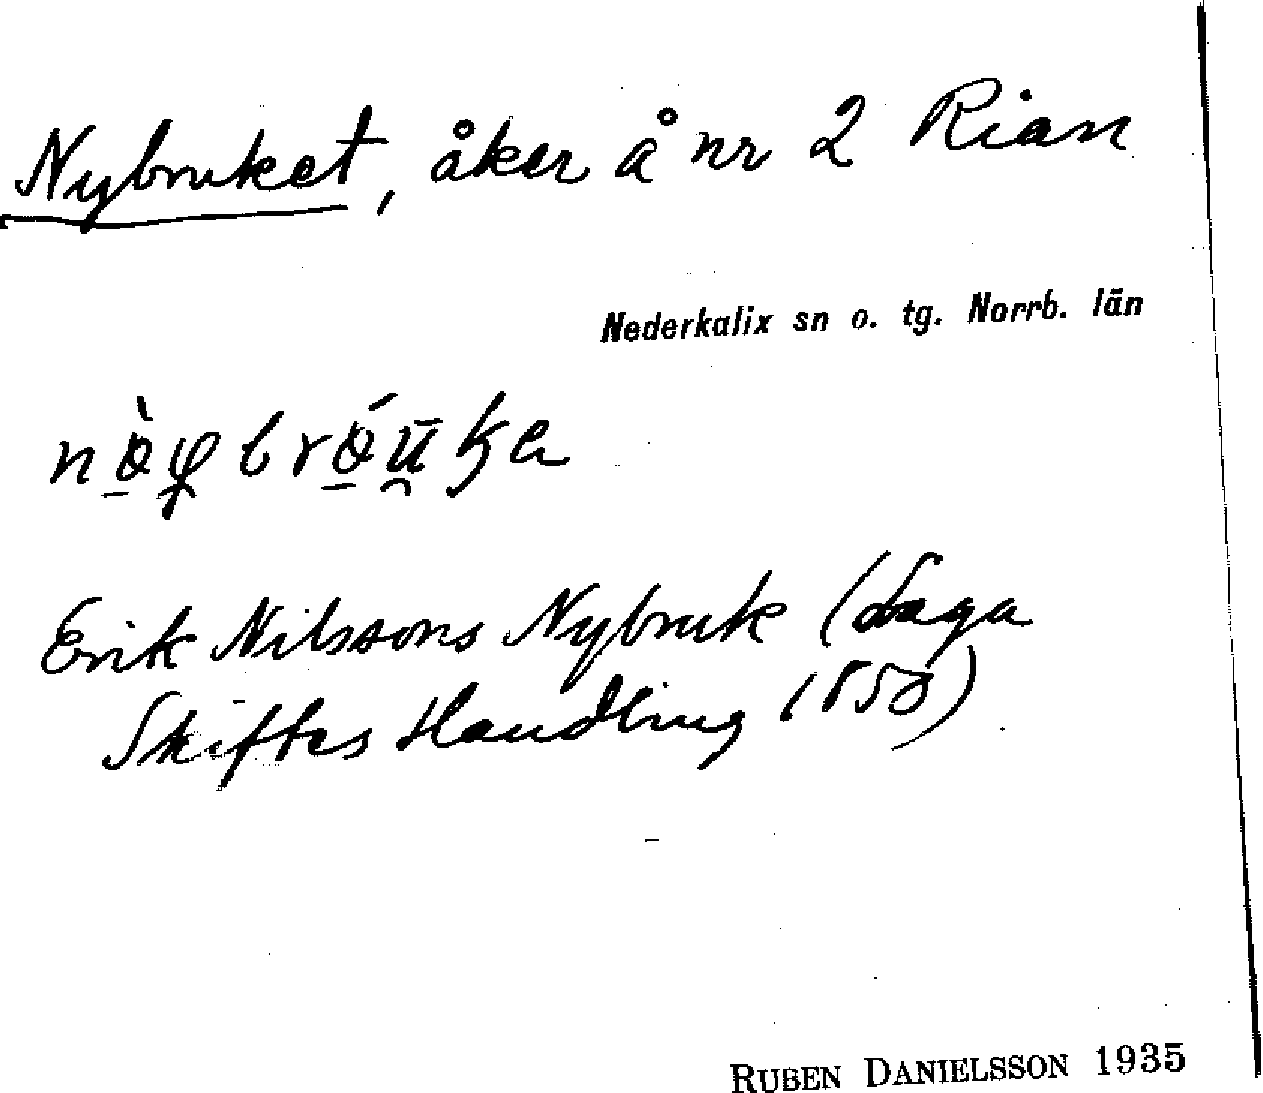 Nybruket, åker å nr 2 Rian
Nederkalix sn o. tg. Norrb. län
Erik Nilssons Nybruk (Laga
Skiftes Handling 1858)
RUBEN DANIELSSON 1935